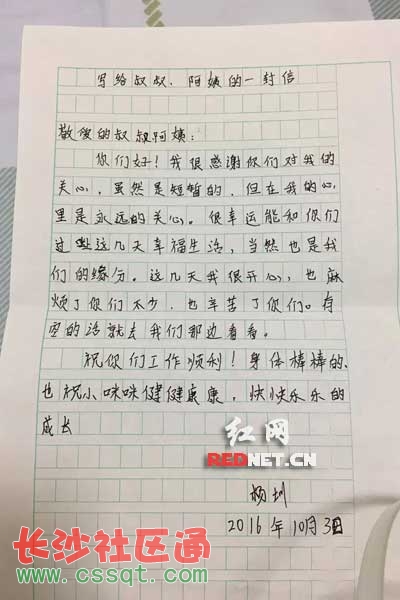 写给叔叔、阿姨的一封信
敬爱的叔叔阿姨:
你们好!我很感谢你们对我的
关心,虽然是短暂的,但在我的心
里是永远的关心。很幸运能和你们
过些这几天幸福生活,当然也是我
们的缘分。这几天我很开心,也麻
烦了你们太少,也辛苦了你们。有
空的话就去我们那边看看。
祝你们工作顺利!身体棒棒的、
也祝小咪咪健健康康,快快乐乐的
成长
红网
REDNET.CN
杨
2016年10月3日
长沙社区通
www.cssqt.com